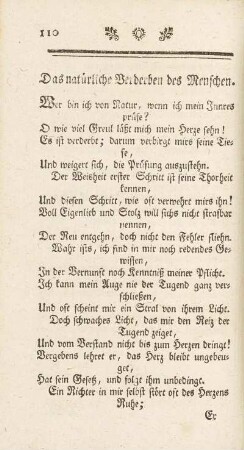 110
Das natürliche Verderben des Menschen.
Wer bin ich von Natur, wenn ich mein Innres
prüfe?
O wie viel Greul läßt mich mein Herze sehn!
Es ist verderbt; darum verbirgt mirs seine Tie-
fe,
Und weigert sich, die Prüfung auszustehn.
Der Weisheit erster Schritt ist seine Thorheit
kennen,
Und diesen Schritt, wie oft verwehrt mirs ihn!
Voll Eigenlieb und Stolz will sichs nicht strafbar
nennen,
Der Reu entgehn, doch nicht den Fehler fliehn.
Wahr ists, ich find in mir noch redendes Ge-
wissen,
In der Vernunft noch Kenntniß meiner Pflicht.
Ich kann mein Auge nie der Tugend ganz ver-
schließen,
Und oft scheint mir ein Stral von ihrem Licht.
Doch schwaches Licht, das mir den Reiz der
Tugend zeiget,
Und vom Verstand nicht bis zum Herzen dringt!
Vergebens lehret er, das Herz bleibt ungebeu-
get,
Hat sein Gesetz, und folgt ihm unbedingt.
Ein Richter in mir selbst stört oft des Herzens
Ruhe;
Er